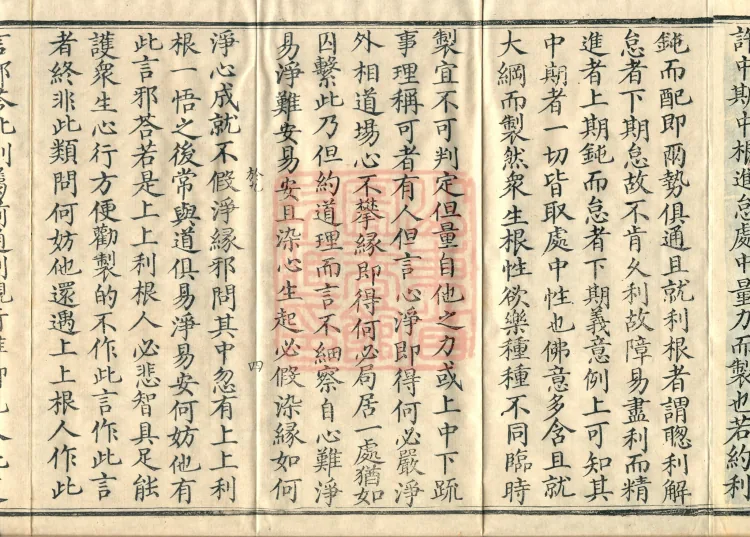 許中期中根進怠處中量力而製也若約利
鈍而配即兩勢俱通且就利根者謂聦利解
怠者下期怠故不肯久利故障易盡利而精
進者上期鈍而怠者下期義意例上可知其
中期者一切皆取處中性也佛意多含且就
大綱而製然衆生根性欲樂種種不同臨時
製宜不可判定但量自他之力或上中下䟽
事理稱可者有人但言心淨即得何必嚴淨
外相道場心不攀緣即得何必局居一處猶如
囚繫此乃但約道理而言不細察自心難淨
易淨難安易安且染心生起必假染緣如何
淨心成就不假淨緣邪問其中忽有上上利
根一悟之後常與道俱易淨易安何妨他有
此言邪荅若是上上利根人必悲智具足能
護衆生心行方便勸製的不作此言作此言
者終非此類問何妨他還遇上上根人作此
四